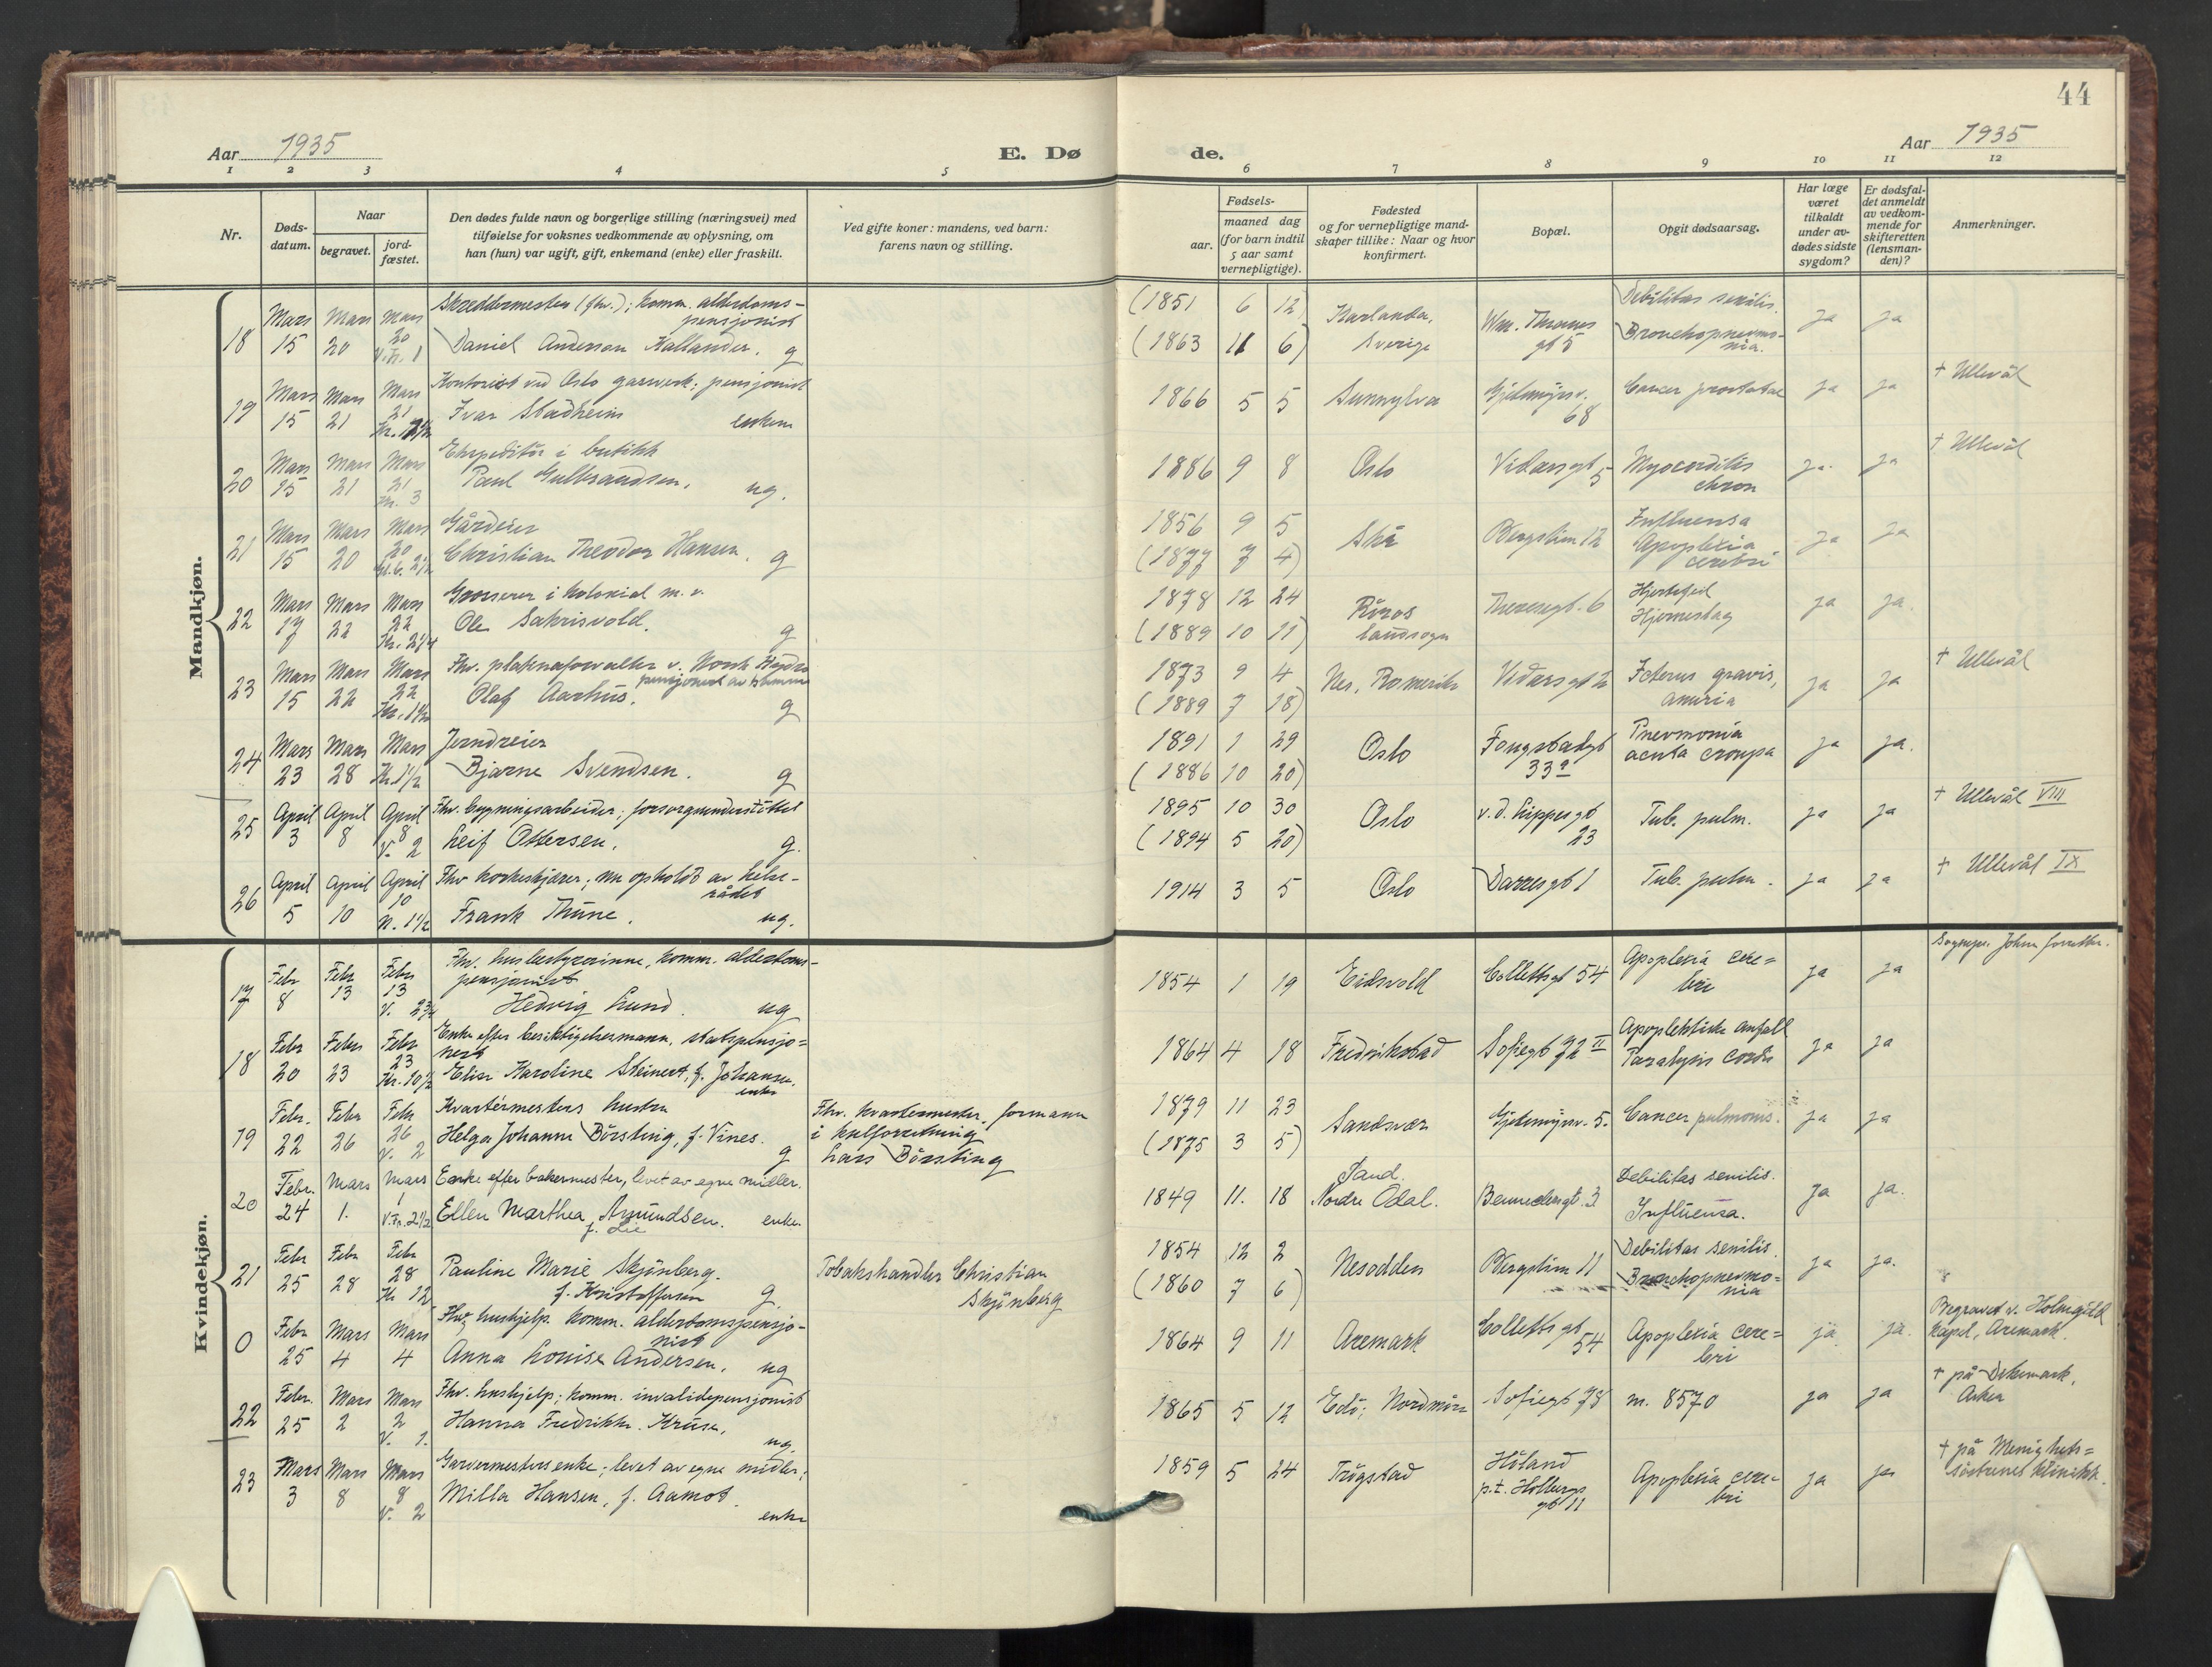 44
Aar 1935
E. Dø
de.
Aar 1935
1 2 3 4 5 6 7 8 9 10 11 12
Nr.
Døds-
datum.
Naar
begravet.
jord-
fæstet.
Den dødes fulde navn og borgerlige stilling (næringsvei) med
tilføielse for voksnes vedkommende av oplysning, om
han (hun) var ugift, gift, enkemand (enke) eller fraskilt.
Ved gifte koner: mandens, ved barn:
farens navn og stilling.
Fødsels-
aar.
maaned dag
(for barn indtil
5 aar samt
vernepligtige).
Fødested
og for vernepligtige mand-
skaper tillike: Naar og hvor
konfirmert.
Bopæl.
Opgit dødsaarsag.
Har læge
været
tilkaldt
under av-
dødes sidste
sygdom?
Er dødsfal-
det anmeldt
av vedkom-
mende for
skifteretten
(lensman-
den)?
Anmerkninger.
Mandkjøn.
18 Mars 15 Mars 20 Mars 20
Skreddermester (fhv.); komm. alderdoms-
pensjonist
Daniel Anderson Kallander. g
(1851 6 12)
(1863 11 6)
Karlanda,
Sverige
Wm. Thranes
gt 5
Debilitas senilis.
Bronchopnevmo-
nia.
ja ja
19 Mars 15 Mars 21 Mars 21
Kontorist ved Oslo gasverk; pensjonist
Ivar Stadheim enkem
1866 5 5 Sunnylva
68
Cancer prostatae ja ja + Ullevål
20 Mars 15 Mars 21 Mars 21 Kr. 3
Ekspeditør i butikk
Paul Gulbrandsen. ug.
1886 9 8 Oslo Vidarsgt 5
Myocarditis
chron
ja. ja + Ullevål
21 Mars 15 Mars 20 Mars 20
Gårdeier
Christian Theodor Hansen. g
1856 9 5
(1877 7 4)
Skå Bergslien 12
Influensa
Apoplexia
cerebri
ja ja
22 Mars 17 Mars 22 Mars 22
Grosserer i kolonial m. v.
Ole Sakrisvold. g
1878 12 24
(1889 10 11)
Røros
landsogn
Theresegt. 6
Hjertefeil
Hjerneslag
ja ja.
23 Mars 15 Mars 22 Mars 22
Olaf Aarhus. g
1873 9 4
(1889 7 18)
Nes, Romerike Vidarsgt 2
Icterus gravis,
anuria
ja ja + Ullevål
24 Mars 23 Mars 28 Mars Kr. 1 1/2
Jerndreier
Bjarne Svendsen. g
1891 1 29
(1886 10 20)
Oslo
33 a
Pnevmonia
acuta croupa
ja ja.
25 April 3 April 8 April 8 V. 2
Fhv. bygningsarbeider; forsorgsunderstøttet
Leif Ottersen. g.
1895 10 30
(1894 5 20)
Oslo
v. d. Lippesgt
23
Tub. pulm. ja ja + Ullevål VIII
26 April 5 April 10 April 10 N. 1 1/2
Fhv korkeskjærer; nu opholdt av helse-
rådet
Frank Thune. ug.
1914 3 5 Oslo Darresgt 1 Tub. pulm. ja ja + Ullevål IX
Kvindekjøn.
17 Febr 8 Febr 13 Febr 13 V. 2 3/4
Fhv. husbestyrerinne, komm. alderdoms-
pensjonist
Hedvig Lund. ug
1854 1 19 Eidsvold Collettsgt 54
Apoplexia cere=
bri
ja ja
18 Febr 20 Febr 23 Febr 23 Kr. 10 1/2
Enke efter besiktigelsesmann, statspensjo=
nist
Elise Karoline Steinert, f. Johansen. enke
1864 4 18 Fredrikstad Sofiegt 72 II
Apoplektisk anfall
Paralysis cordis
ja ja
19 Febr. 22 Febr 26 Febr 26 V. 2
Kvartérmesters hustru
Helga Johanne Börsting, f. Vines. g
Fhv. kvartermester, formann
i kulforretning
Lars Börsting
1879 11 23
(1875 3 5)
Sandsvær 5. Cancer pulmonis. ja ja
20 Febr. 24 Mars 1. Mars 1 V.Fr. 2 1/2
Enke efter bakermester, levet av egne midler.
Ellen Marthea Amundsen. enke.
f. Lie
1849 11. 18
Sand.
Nordre Odal.
Bennechesgt. 3
Debilitas senilis.
Influensa.
ja ja.
21 Febr 25 Febr 28 Febr 28 Kr 12
Pauline Marie Skjönberg.
f. Kristoffersen g.
Tobakshandler Christian
Skjönberg
1854 12 2
(1860 7 6)
Nesodden Bergslien 11
Debilitas senilis.
Bronchopnevmo=
nia
ja ja.
0 Febr 25 Mars 4 Mars 4
Fhv. hushjelp. komm. alderdomspensjo-
nist
Anna Louise Andersen. ug
1864 9 11 Aremark
Collettsgt
54
Apoplexia cere=
bri
ja. ja.
Begravet v. Holmgild
kapel, Aremark.
22 Febr. 25 Mars 2 Mars 2 V. 1.
Fhv. hushjelp; komm. invalidepensjonist
Hanna Fredrikke Kruse. ug.
1865 5 12 Edö, Nordmöre Sofiegt 78 m. 8570 ja ja
+ på Dikemark,
Asker
23 Mars 3 Mars 8 Mars 8 V. 2
Garvermesters enke; levet av egne midler;
Milla Hansen, f. Aamot. enke
1859 5 24 Trögstad
Höland
p.t. Holbergs
gt 11
Apoplexia cere-
bri
ja ja
+ på Menighets=
söstrenes klinikk.